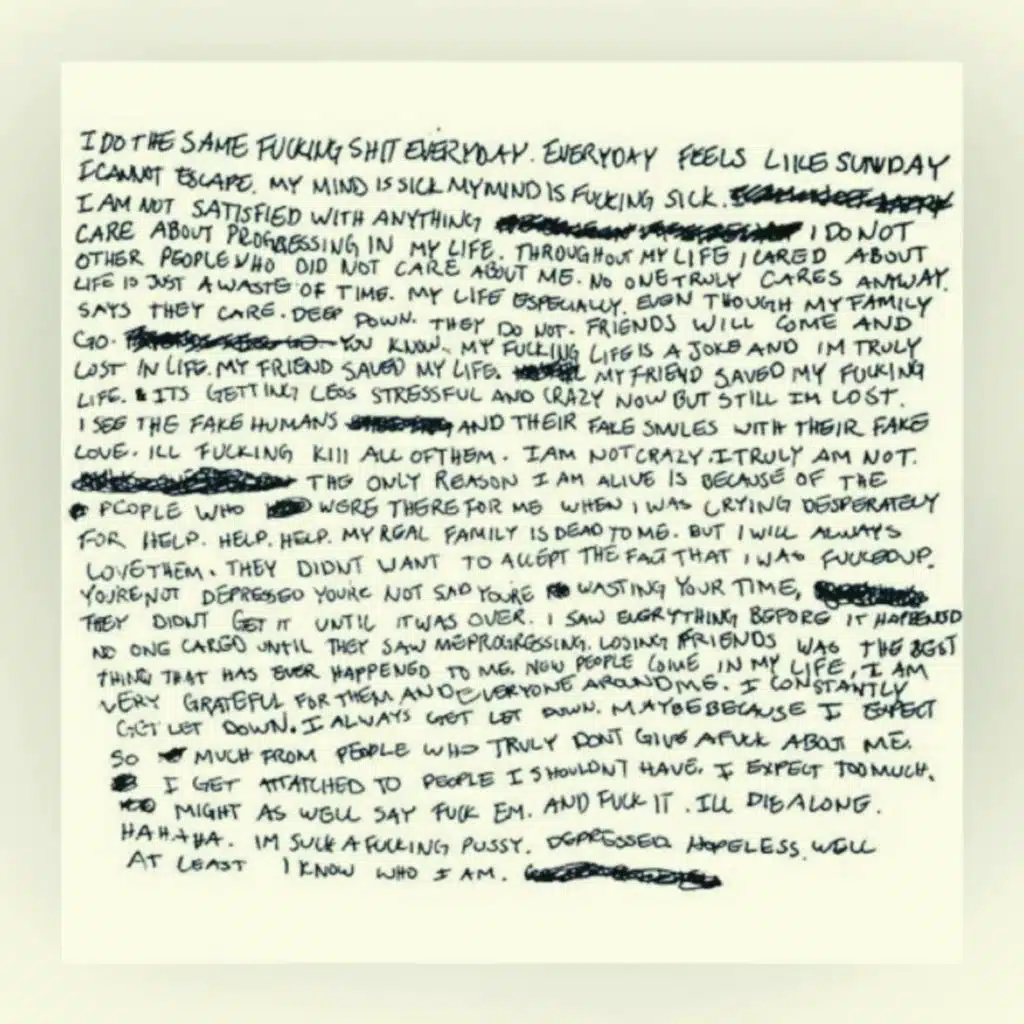 I DO THE SAME FUCKING SHIT EVERYDAY. EVERYDAY FEELS LIKE SUNDAY
I CANNOT ESCAPE. MY MIND IS SICK MY MIND IS FUCKING SICK.
I AM NOT SATISFIED WITH ANYTHING I DO NOT
CARE ABOUT PROGRESSING IN MY LIFE. THROUGHOUT MY LIFE I CARED ABOUT
OTHER PEOPLE WHO DID NOT CARE ABOUT ME. NO ONE TRULY CARES ANYWAY.
LIFE IS JUST A WASTE OF TIME. MY LIFE ESPECIALLY. EVEN THOUGH MY FAMILY
SAYS THEY CARE. DEEP DOWN. THEY DO NOT. FRIENDS WILL COME AND
GO. YOU KNOW. MY FUCKING LIFE IS A JOKE AND IM TRULY
LOST IN LIFE. MY FRIEND SAVED MY LIFE. MY FRIEND SAVED MY FUCKING
LIFE. ITS GETTING LESS STRESSFUL AND CRAZY NOW BUT STILL IM LOST.
I SEE THE FAKE HUMANS AND THEIR FAKE SMILES WITH THEIR FAKE
LOVE. ILL FUCKING KILL ALL OF THEM. I AM NOT CRAZY. I TRULY AM NOT.
THE ONLY REASON I AM ALIVE IS BECAUSE OF THE
PEOPLE WHO WERE THERE FOR ME WHEN I WAS CRYING DESPERATELY
FOR HELP. HELP. HELP. MY REAL FAMILY IS DEAD TO ME. BUT I WILL ALWAYS
LOVE THEM. THEY DIDNT WANT TO ACCEPT THE FACT THAT I WAS FUCKED UP.
YOURE NOT DEPRESSED YOURE NOT SAD YOURE WASTING YOUR TIME,
THEY DIDNT GET IT UNTIL IT WAS OVER. I SAW EVERYTHING BEFORE IT HAPPENED
NO ONE CARED UNTIL THEY SAW ME PROGRESSING. LOSING FRIENDS WAS THE BEST
THING THAT HAS EVER HAPPENED TO ME. NOW PEOPLE COME IN MY LIFE, I AM
VERY GRATEFUL FOR THEM AND EVERYONE AROUND ME. I CONSTANTLY
GET LET DOWN. I ALWAYS GET LET DOWN. MAYBE BECAUSE I EXPECT
SO MUCH FROM PEOPLE WHO TRULY DONT GIVE A FUCK ABOUT ME.
I GET ATTATCHED TO PEOPLE I SHOULDN'T HAVE. I EXPECT TOO MUCH.
MIGHT AS WELL SAY FUCK EM. AND FUCK IT. ILL DIE ALONE.
HAHAHA. IM SUCH A FUCKING PUSSY. DEPRESSED. HOPELESS. WELL
AT LEAST I KNOW WHO I AM.